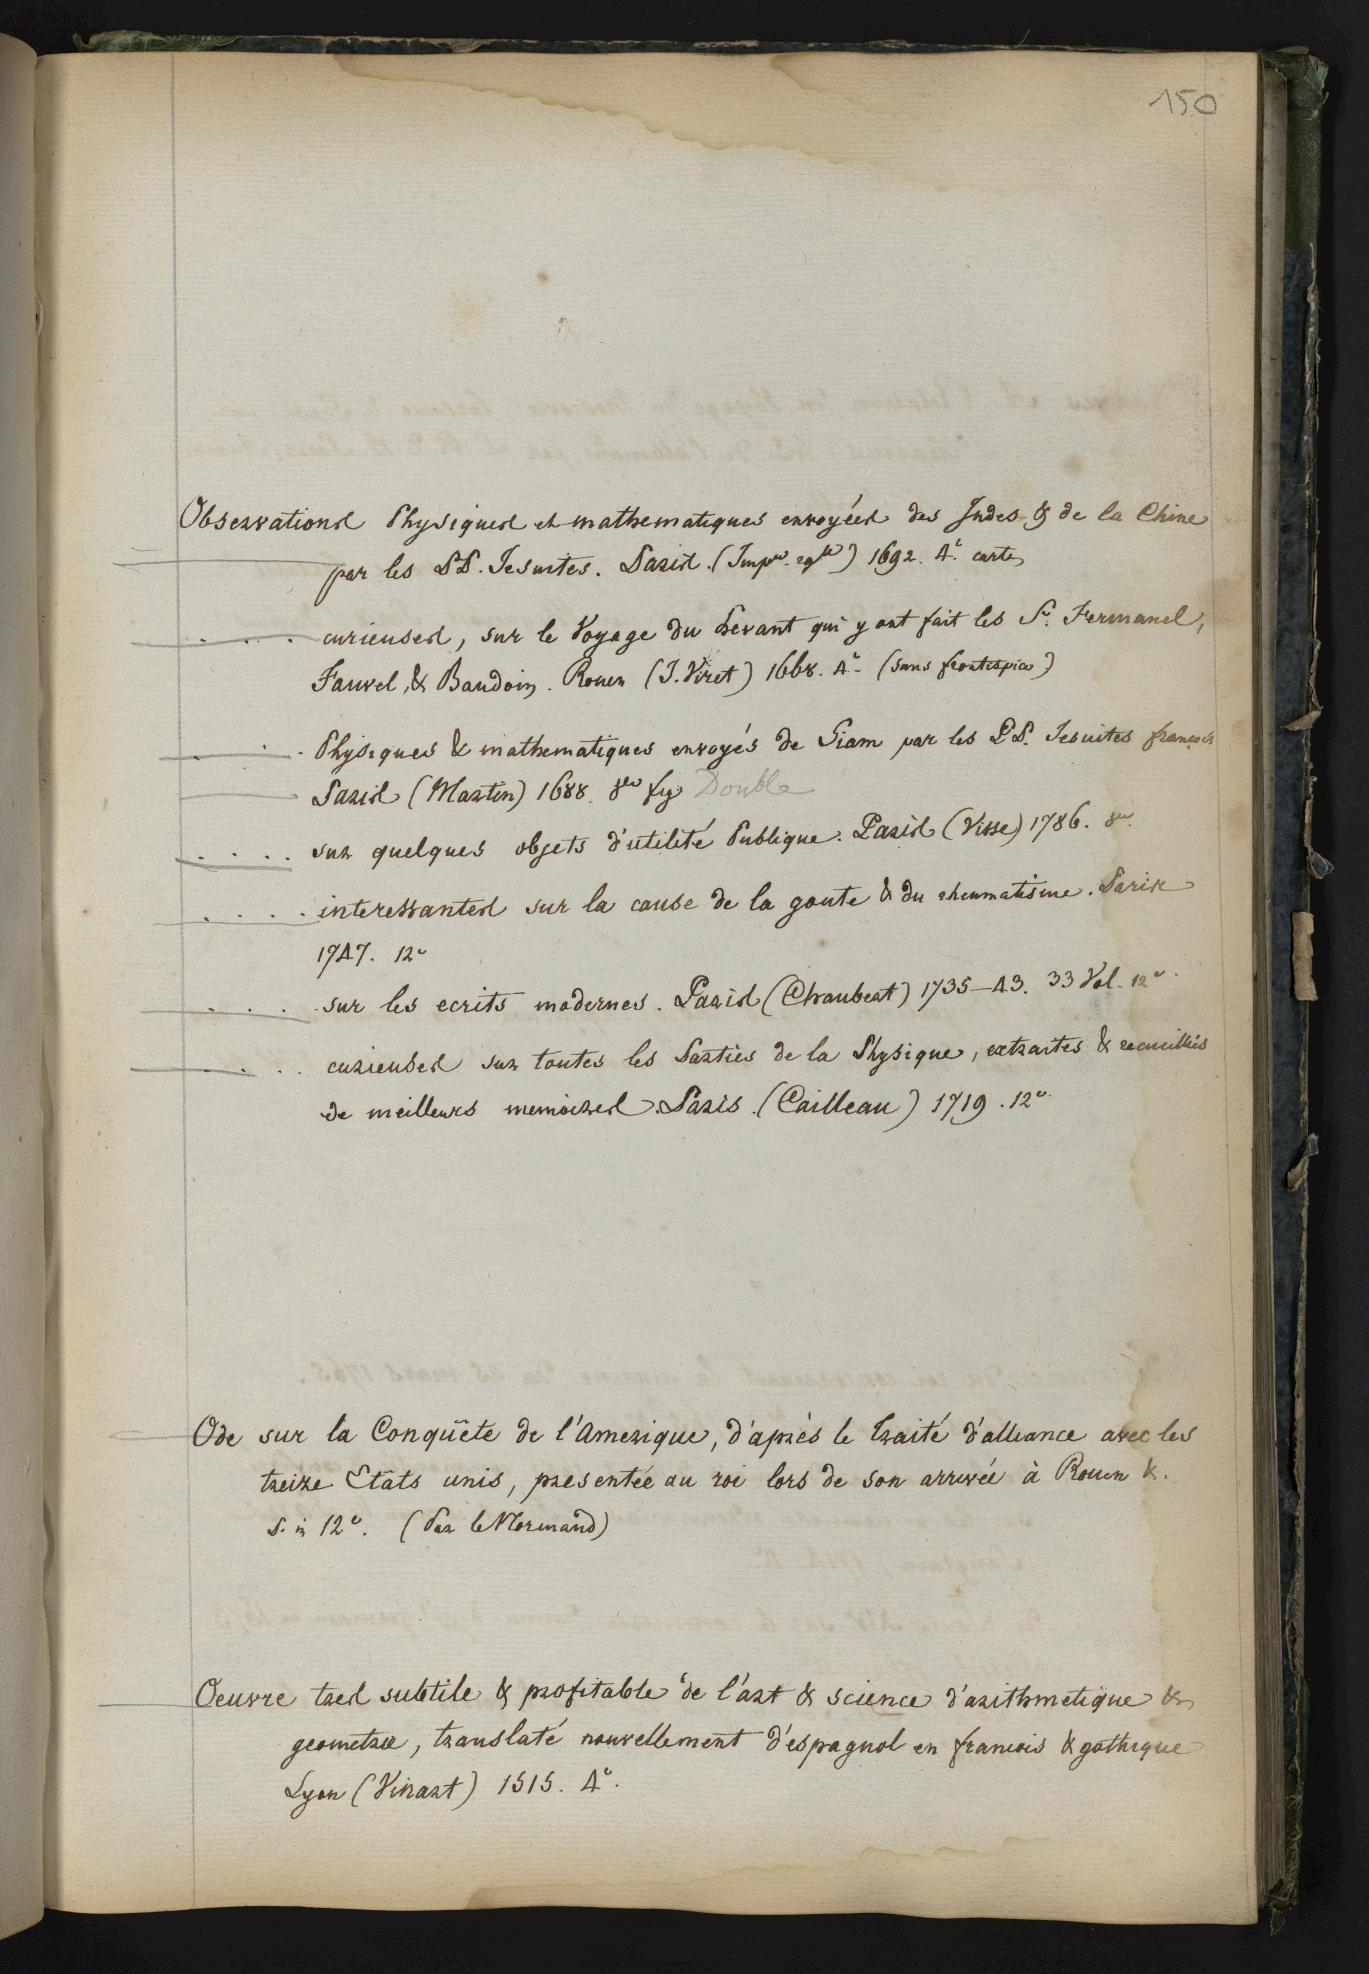 150
Observations Physiques et mathematiques envoyées des Indes & de la Chine
par les PP. Jesuites. Paris. (Imprie. rgle) 1692. 4° cartes
. . . . curieuses, sur le Voyage du Levant qui y ont fait les Sr. Fermanel,
Fauvel, & Baudoin. Rouen (J. Viret) 1668. 4° (sans frontispice)
. . . Physiques & mathematiques envoyés de Siam par les PP. Jesuites françois
Paris (Martin) 1688. 8vo fig Double
. . . . sur quelques objets d'utilité Publique. Paris (Visse) 1786. 8vo.
. . . . interessantes sur la cause de la goute & du rheumatisme. Paris
1747. 12°
. . . . sur les ecrits modernes. Paris (Chaubert) 1735—43. 33 Vol. 12°.
. . . . curieuses sur toutes les Parties de la Physique, extraites & recueillies
de meilleurs memoires. Paris. (Cailleau) 1719. 12°.
Ode sur la Conquête de l'Amerique, d'après le traité d'alliance avec les
treize Etats unis, presentée au roi lors de son arrivée à Rouen &.
12°. (Par le Normand)
Oeuvre tres subtile & profitable de l'art & science d'arithmetique &
geometrie, translaté nouvellement d'espagnol en francois & gothique
Lyon (Vinart) 1515. 4°.